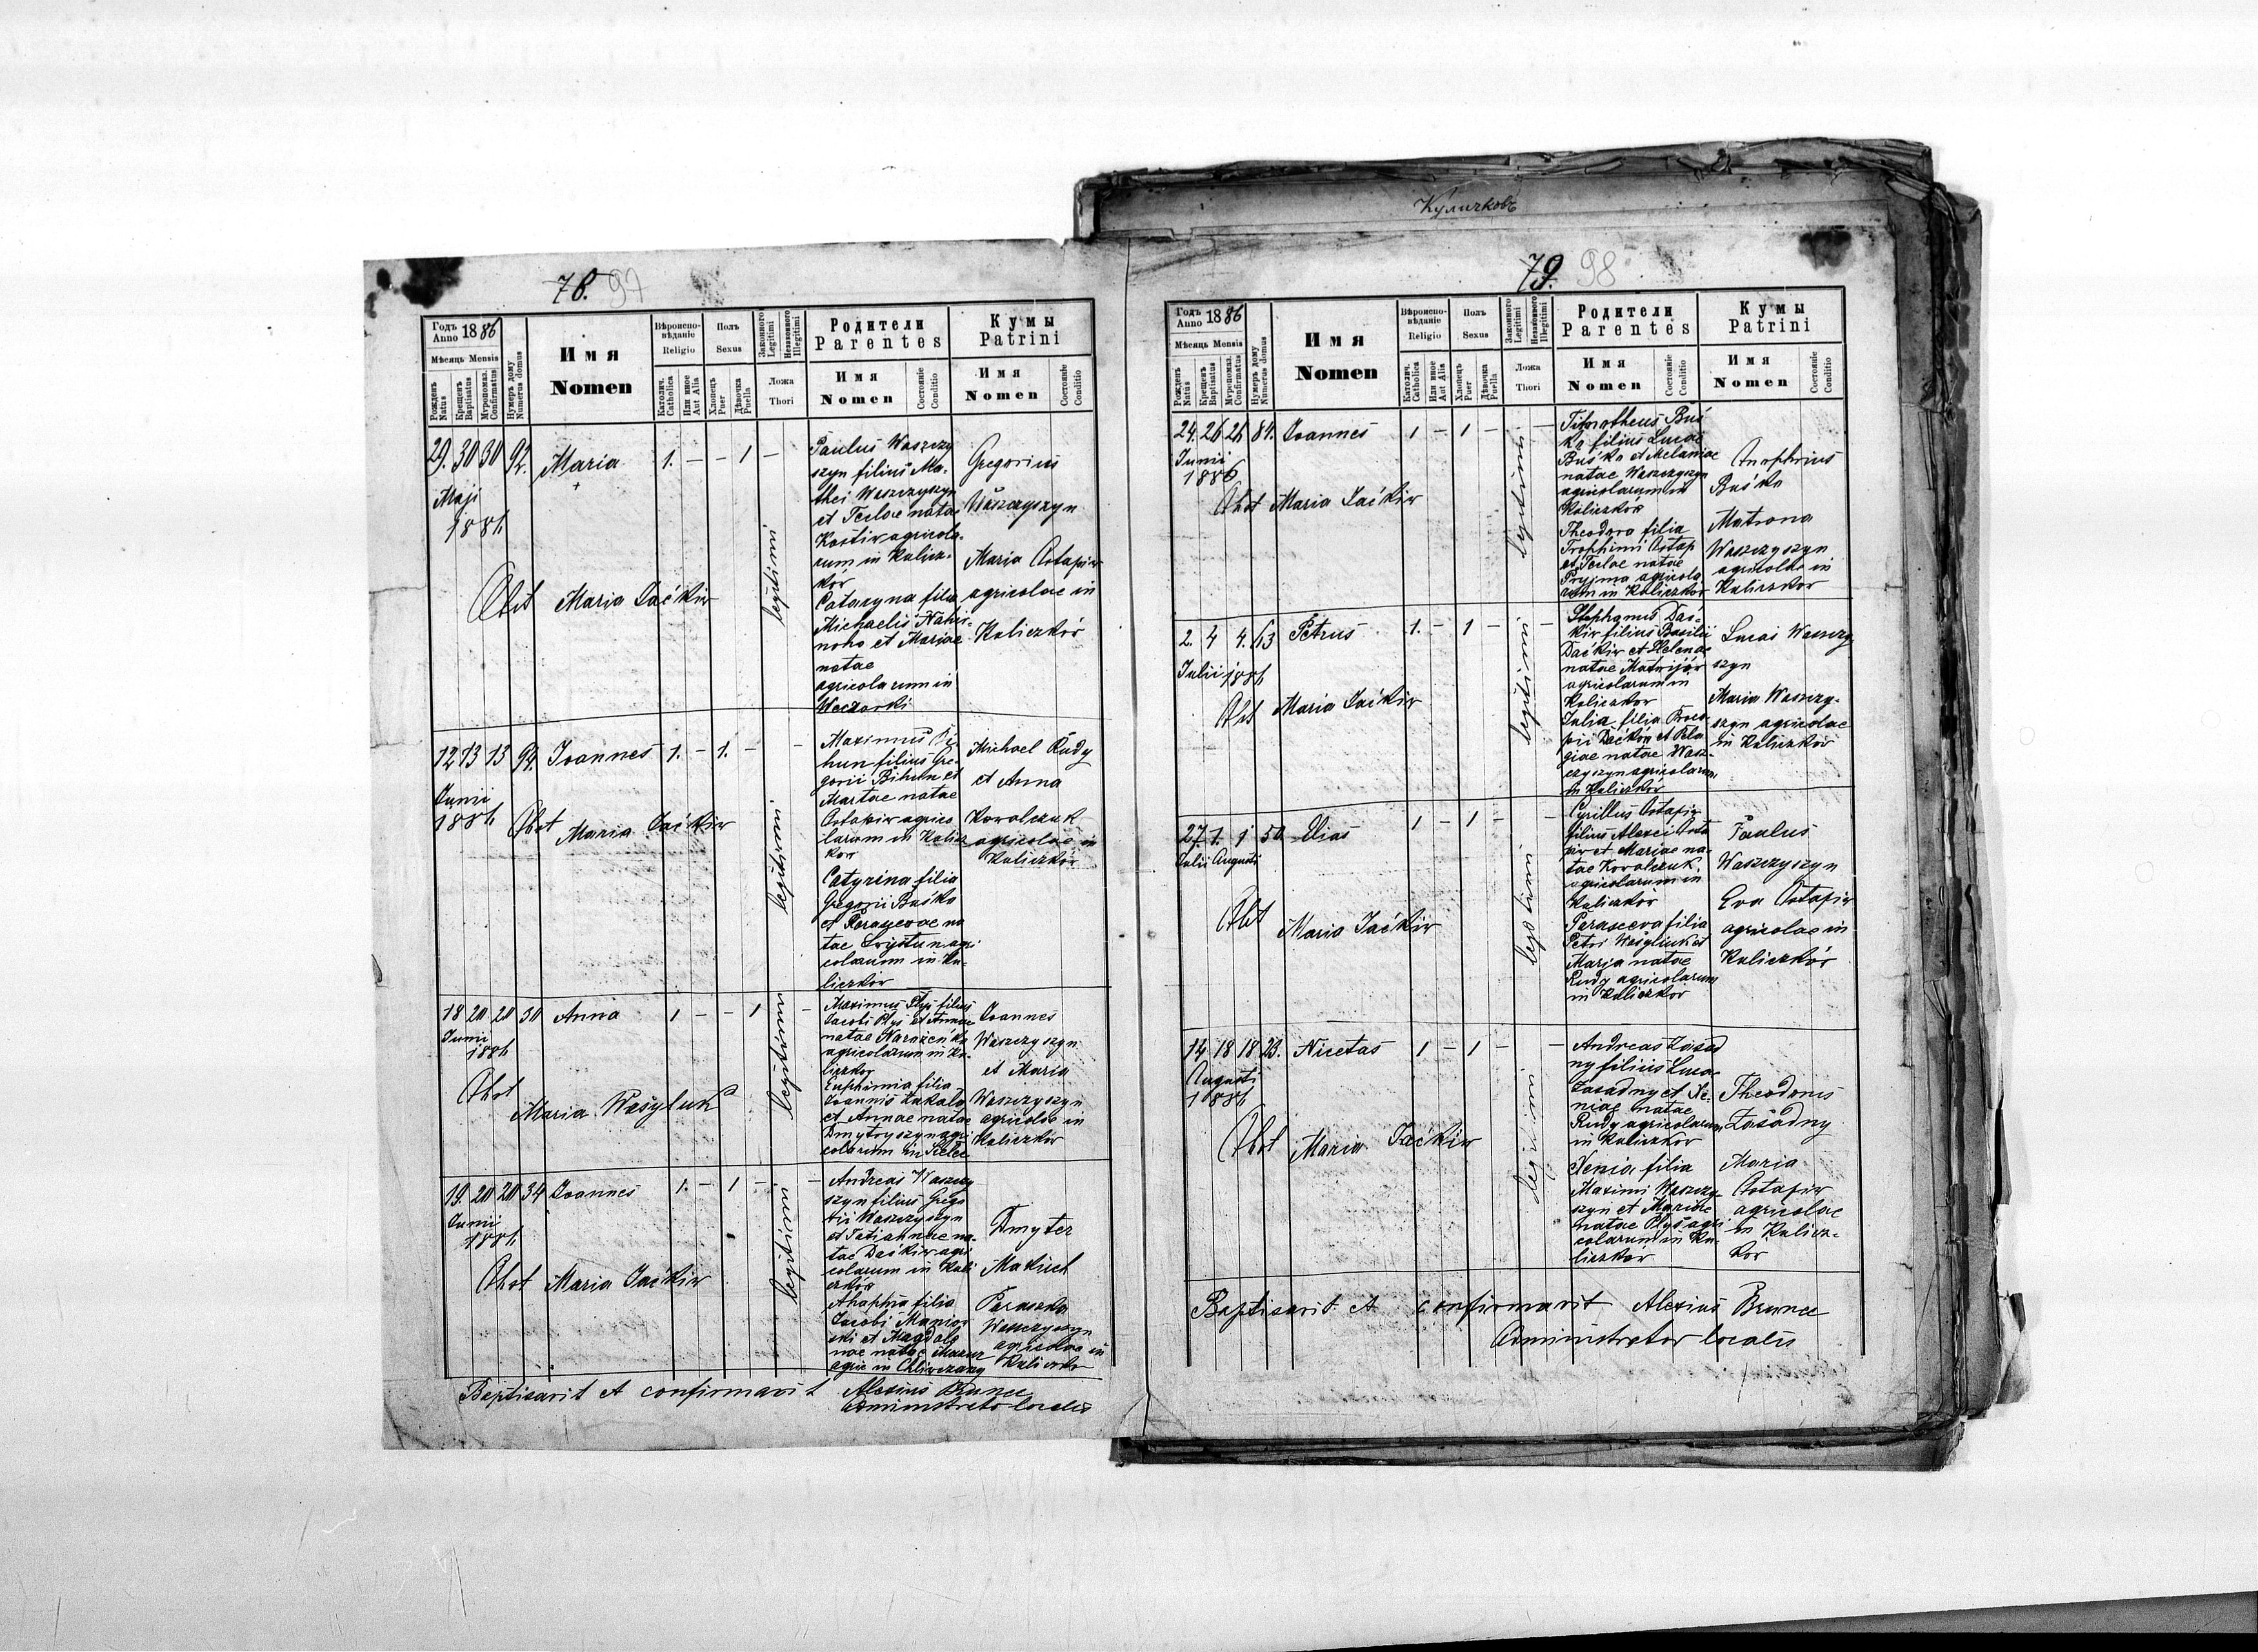 Куличковъ
78. 97
Годъ Anno 1886
Мѣсяць Mensis
Рождень Natus
Крещенъ Baptisatus
Мѵропомаз. Confirmatus
Нумеръ дому Numerus domus
Имя
Nomen
Вѣроиспо-
вѣданіе
Religio
Католич. Catholica
Или иное Aut Alia
Полъ
Sexus
Хлопець Puer
Дѣвочка Puella
Законного Legitimi
Незаконного Illegitimi
Ложа
Thori
Родители
Parentes
Имя
Nomen
Состояніе Conditio
Кумы
Patrini
Имя
Nomen
Состояніе Conditio
29. 30 30 92. Maria 1. - - 1 -
Maji
1886
Obst Maria Daćkiw
legitimi
Paulus Waszczy
szyn filius Ma-
thei Waszczyszyn
et Teclae natae
Kostiw agricola-
rum in Kulicz-
ków
Cataryna filia
Michaelis
et Mariae
natae
agricolarum in
Gregorius
Waszczyszyn
Maria Ostapiw
agricolae in
Kuliczków
12 13 13 99. Ioannes 1. - 1. - -
Junii
1886 Obst Maria Daćkiw
legitimi
Maximus Bi-
hun filius Gre-
gorii Bihun et
Martae natae
Ostapiw agrico
larum in Kulicz
kow
Catyrina filia
Gregorii Buśko
et Parascevae na
tae agri
colarum in Ku-
liczkow
Michael Rudy
et Anna
Kowalczuk
agricolae in
Kuliczków
18 20 20 30 Anna 1 - - 1 -
Junii
1886
Obst
Maria Wasyluk
legitimi
Maximus Plys filius
Jacobi Plys et Annae
natae
agricolarum in Ku-
liczkow
Euphimia filia
Ioannis
et Annae natae
Dmytryszyn agri
colarum in
Ioannes
Waszczyszyn
et Maria
Waszczyszyn
agricolae in
Kuliczków
19. 20 20 34 Ioannes 1. - 1 - -
Junii
1886
Obst Maria Daćkiw
legitimi
Andreas Waszczy
szyn filius Grego
rii Waszczyszyn
et Tatiannae na-
tae Daćkiw agri
colarum in Kuli
czków
Ahaphia filia
Jacobi
et Magdale
nae natae Mazur
agric in Chliwczany
Dmyter
Makuch
Paraszka
Waszczyszyn
agricolae in
Baptisavit et confirmavit Alexius
Administrator localis
79. 98
Годъ Anno 1886
Мѣсяць Mensis
Рождень Natus
Крещенъ Baptisatus
Мѵропомаз. Confirmatus
Нумеръ дому Numerus domus
Имя
Nomen
Вѣроиспо-
вѣданіе
Religio
Католич. Catholica
Или иное Aut Alia
Полъ
Sexus
Хлопець Puer
Дѣвочка Puella
Законного Legitimi
Незаконного Illegitimi
Ложа
Thori
Родители
Parentes
Имя
Nomen
Состояніе Conditio
Кумы
Patrini
Имя
Nomen
Состояніе Conditio
24. 26 26 84. Ioannes 1 - 1 - -
Junii
1886
Obst Maria Daćkiw
legitimi
Timotheus Buś
ko filius Lucae
Buśko et Melaniae
natae Waszczyszyn
agricolarum in
Kuliczków
Theodora filia
Trophimi Ostap
et Teclae natae
Pryjma agricola
rum in Kuliczkow
Onophrius
Buśko
Matrona
Waszczyszyn
agricolae in
Kuliczkow
2. 4 4. 63 Petrus 1. - 1 - -
Julii 1886
Obst Maria Daćkiw
legitimi
Stephanus Dać-
kiw filius Basilii
Daćkiw et Helenae
natae Matwijów
agricolarum in
Kuliczkow
Julia filia Proco-
pii Daćków et Pela
giae natae Wasz-
czyszyn agricolarum
in Kuliczków
Lucas Waszczy
szyn
Maria Waszczy-
szyn agricolae
in Kuliczków
27. 1. 1 50 Elias 1 - 1 - -
Julii Augusti
Obst
Maria Daćkiw
legitimi
Cyrillus Ostapiw
filius Alexei Osta
piw et Mariae na-
tae Kowalczuk
agricolarum in
Kuliczków
Parasceva filia
Petri Wasyluk et
Maria natae
Rudy agricolarum
in Kuliczkow
Paulus
Waszczyszyn
Eva Ostapiw
agricolae in
Kuliczków
14 18 18 23. Nicetas 1 - 1 - -
Augusti
1886
Obst Maria Daćkiw
legitimi
Andreas Zasad
ny filius Lucae
Zasadny et Xe-
niae natae
Rudy agricolarum
in Kuliczkow
Xenia filia
Maximi Waszczy-
szyn et Mariae
natae Plyś agri
colarum in Ku-
liczków
Theodorus
Zasadny
Maria
Ostapiw
agricolae
in Kulicz-
kow
Baptisavit et confirmavit Alexius
Administrator localis